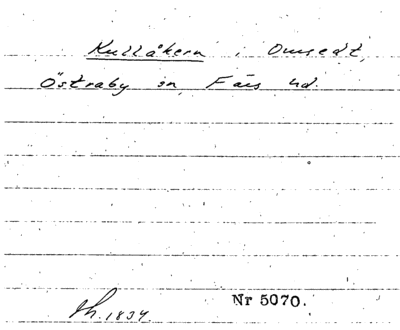 Kullåkern, Onsedt,
Östraby sn, Färs hd.
Nr 5070.
Th. 1834.